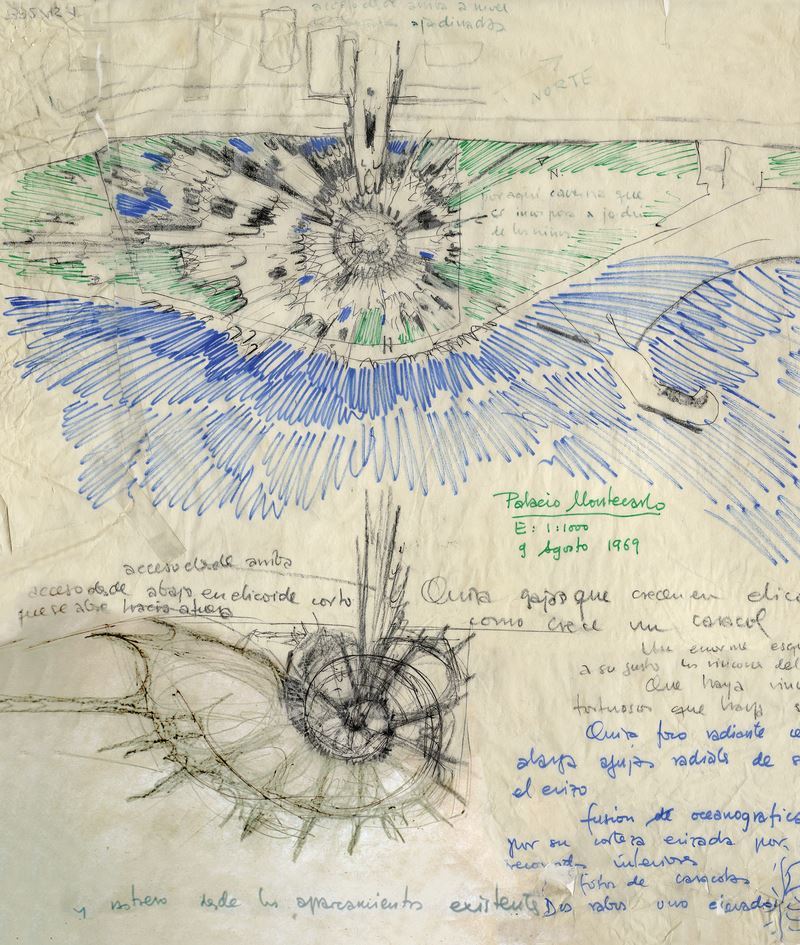 acceso desde arriba a nivel
ajardinadas
NORTE
N.
por aquí caverna que
se incorpora a
de los niños
N
Palacio Montecarlo
E: 1:1000
9 Agosto 1969
acceso desde arriba
acceso desde abajo en elicoide corto
que se abre hacia afuera
Quizá gajos que crecen en elico
como crece un caracol
Un enorme esq
a su gusto los rincones del
Que haya rinc
tortuosos que haya s
Quizá foro radiante ce
alarga agujas radiales de s
el erizo
fusión de oceanografico
por su corteza erizada por
recorridos interiores
fotos de caracolas
y rastrero desde los aparcamientos existente
Dos tubos uno elevado